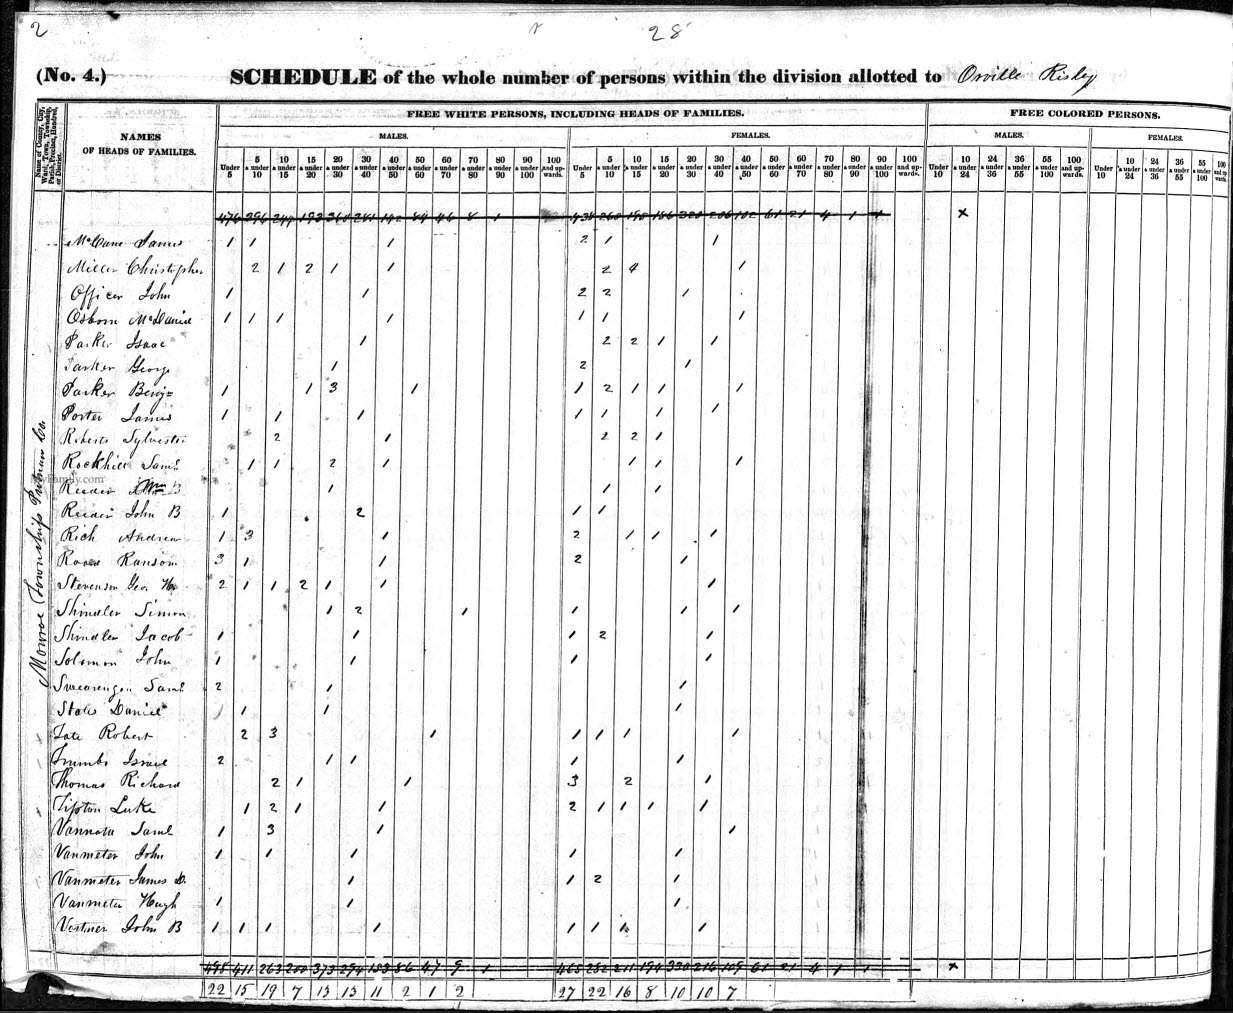 2 28
(No. 4.) SCHEDULE of the whole number of persons within the division allotted to Orville Risley
Name of County, City, Ward, Town, Township, Parish, Precinct, Hundred, or District.
NAMES OF HEADS OF FAMILIES.
FREE WHITE PERSONS, INCLUDING HEADS OF FAMILIES.
FREE COLORED PERSONS.
MALES. FEMALES. MALES. FEMALES.
Under 5 5 & under 10 10 & under 15 15 & under 20 20 & under 30 30 & under 40 40 & under 50 50 & under 60 60 & under 70 70 & under 80 80 & under 90 90 & under 100 100 and upwards. Under 5 5 & under 10 10 & under 15 15 & under 20 20 & under 30 30 & under 40 40 & under 50 50 & under 60 60 & under 70 70 & under 80 80 & under 90 90 & under 100 100 and upwards. Under 10 10 & under 24 24 & under 36 36 & under 55 55 & under 100 100 and upwards. Under 10 10 & under 24 24 & under 36 36 & under 55 55 & under 100 100 and upwards.
Monroe Township Putnam Co
MyFamily.com
McCane James 1 1 1 2 1 1
Miller Christopher 2 1 2 1 1 2 4 1
Officer John 1 1 2 2 1
Osborn McDaniel 1 1 1 1 1 1 1
Parker Isaac 1 2 2 1 1
Parker George 1 2 1
Parker Benj 1 1 3 1 1 2 1 1 1
Porter James 1 1 1 1 1 1 1
Roberts Sylvester 2 1 2 2 1
Rockhill Saml 1 1 2 1 1 1 1
Reeder Wm B 1 1 1
Reeder John B 1 2 1 1
Rich Andrew 1 3 1 2 1 1 1
Ransom 3 1 1 2 1
Stevenson Geo W 2 1 1 2 1 1 1
Shindler Simon 1 2 1 1 1 1
Shindler Jacob 1 1 1 2 1
Solomon John 1 1 1 1
Swearengen Saml 2 1 1
States Daniel 1 1 1 1
Tate Robert 2 3 1 1 1 1 1
Trumbo Israel 2 1 1 1 1
Thomas Richard 2 1 1 3 2 1
Tipton Luke 1 2 1 1 2 1 1 1 1
Saml 1 3 1 1
Vanmeter John 1 1 1 1 1
Vanmeter James D. 1 1 2 1
Vanmeter Hugh 1 1 1
John B 1 1 1 1 1 1 1 1
22 15 19 7 13 13 11 2 1 2 27 22 16 8 10 10 7